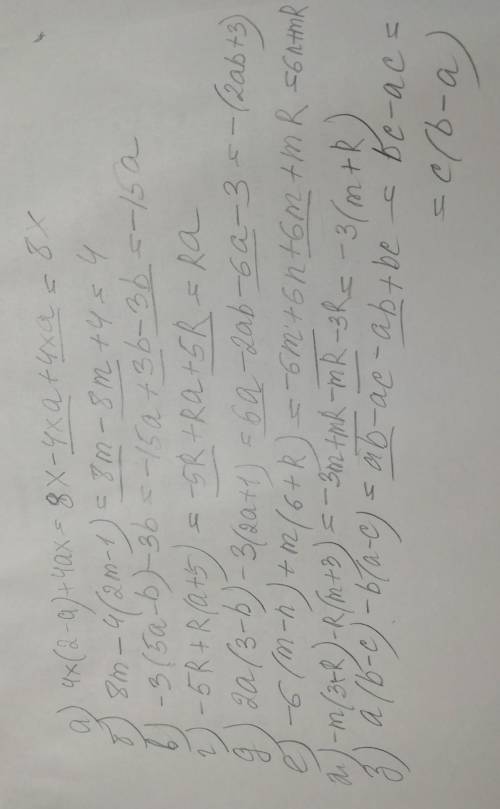 а) 4x(2-a)+4ax=8x-4xa+4xa=8x
б) 8m-4(2m-1)=8m-8m+4=4
в) -3(5a-b)-3b=-15a+3b-3b=-15a
г) -5R+R(a+5)=-5R+Ra+5R=Ra
д) 2a(3-b)-3(2a+1)=6a-2ab-6a-3=-(2ab+3)
е) -6(m-n)+m(6+R)=-6m+6n+6m+mR=6n+mR
ж) -m(3+R)-R(m+3)=-3m+mR-mR-3R=-3(m+R)
з) a(b-c)-b(a-c)=ab-ac-ab+bc=bc-ac=
=c(b-a)